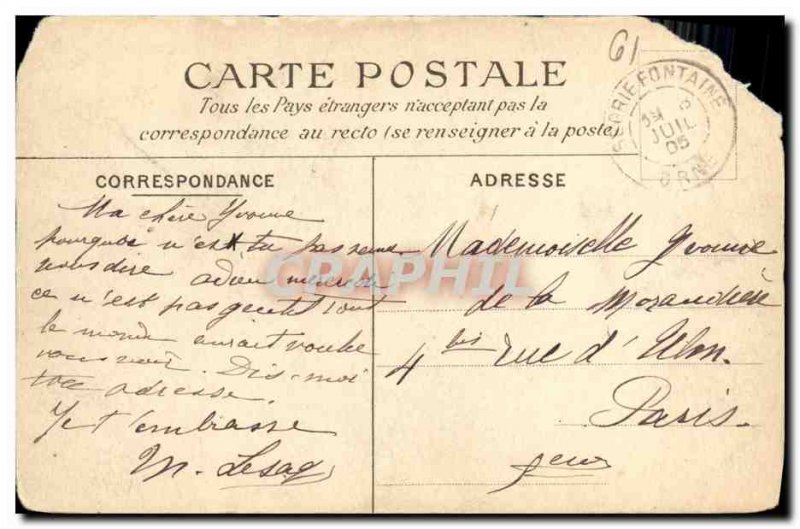 61
CARTE POSTALE
Tous les Pays étrangers n'acceptant pas la
correspondance au recto (se renseigner à la poste)
FONTAINE
JUIL
05
ORNE
CORRESPONDANCE
Ma chère Yvonne
pourquoi n'es tu pas venue
nous dire adieu
ce n'est pas gentil tout
le monde aurait voulu
vous voir. Dis-moi
ton adresse.
Je t'embrasse
M. Lesag
ADRESSE
Mademoiselle Yvonne
de la Morandière
4 bis rue d'Ulm.
Paris.
CPAPHIL